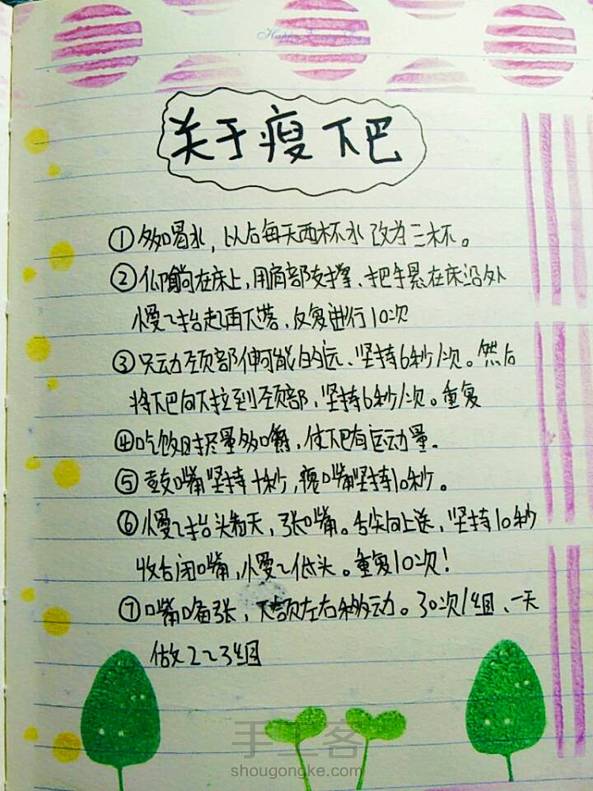 关于瘦下巴
①多喝水，以后每天两杯水改为三杯。
②仰躺在床上，用肩部支撑、把手悬在床沿外
慢慢抬起再下落，反复进行10次
③只动颈部伸可能的远、坚持6秒/次。然后
将下巴向下拉到颈部，坚持6秒/次。重复
④吃饭时尽量多嚼，使下巴有运动量。
⑤鼓嘴坚持十秒，瘪嘴坚持10秒。
⑥慢慢抬头看天，张嘴。舌尖向上送，坚持10秒
收舌闭嘴，慢慢低头。重复10次！
⑦嘴微张，下颌左右移动。30次/组、一天
做2~3组
手工客
shougongke.com